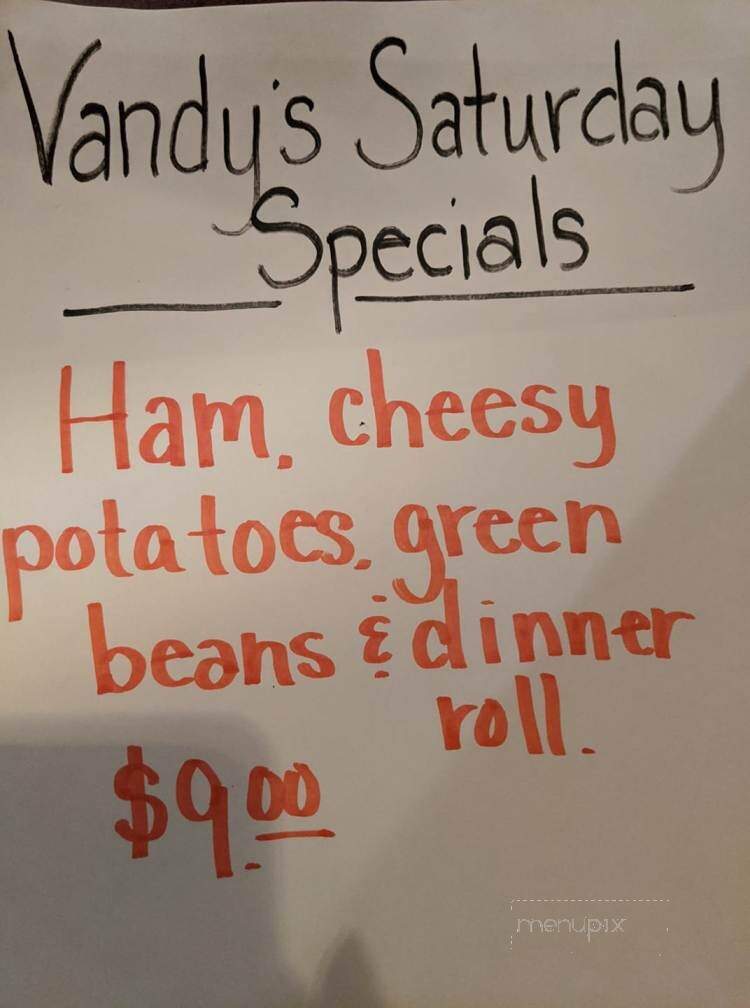 Vandy's Saturday
Specials
Ham, cheesy
potatoes, green
beans & dinner
roll.
$9.00
menupix